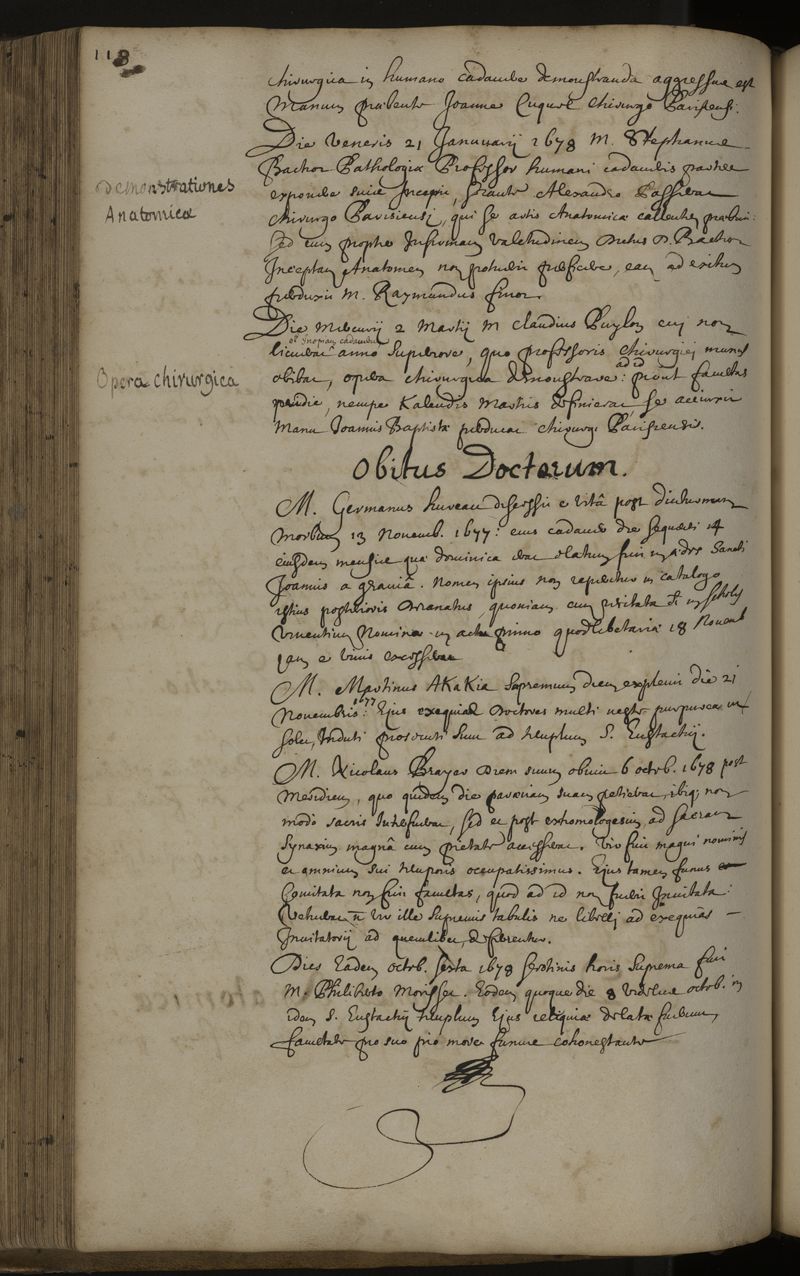 118
chirurgica in humano cadavere demonstranda aggressus est
manum praebente Joanne Chirurgo Parisiensi.
Die veneris 21 Januarij 1678 M. Stephanus
Bachot Pathologiae Professor humani cadaveris partes
Demonstrationes
Anatomicae
exponere suis incepit, secante Alexandro
chirurgo Parisiensi, qui se artis Anatomicae callentem praebuit:
sed cum propter infirmam valetudinem dictus D. Bachot
Inceptam Anatomen non potuerit perficere, eam ad exitum
perduxit M. Raymundus finot.
Die Mercurij 2 Martij M Claudius Puylon cui non
ob inopiam cadaveris
licuerat anno superiore, quo professoris chirurgiae munus
Opera chirurgica
obibat, opera chirurgica demonstrare: ad id prout facultas
pridie, nempe Kalendis Martiis definierat se accinxit
manu Joannis Baptistae chirurgi Parisiensis.
Obitus Doctorum.
M. Germanus hureau discessit e vitâ post diuturnum
morbum 13 Novemb. 1677: eius cadaver die sequenti 14
eiusdem mensis quae dominica erat elatum fuit in aedes Sancti
Joannis a graviâ. Nomen ipsius non reperietur in catalogo
istius posterioris Decanatus, quoniam cum in scholis
viventium Nomina in actu primo quodlibetaria 18 Novemb
jam e vivis excesserat
M. Martinus AKaKia supremum diem explevit die 21
Novembris 1677: Ejus exequias Doctores multi
solui, induti prosecuti sunt ad templum S. Eustachij.
M. Nicolaus Brayer diem suum obiit 6 octob. 1678 post
meridiem, quo quidem die paraeciam suam petierat, ibiq; non
modo sacris interfuerat, sed et post exhomologesim ad sacram
synaxim magnâ cum pietate accesserat. Vir fuit magni nominis
et omnium sui temporis occupatissimus. Ejus tamen funus
Comitata non fuit facultas, quod ad id non fuerit Invitata:
Vetuerat n. vir ille supremis tabulis ne libelli ad exequias
Invitatorij ad quemlibet deferrentur.
Dies Eadem octob. sexta 1678 serotinis horis suprema fuit
M. Philiberto Morisset. Eodem quoque die 8 octob. in
idem S. Eustachij templum Ejus reliquiae delatae fuerunt,
facultate pro suo prio more funus cohonestante